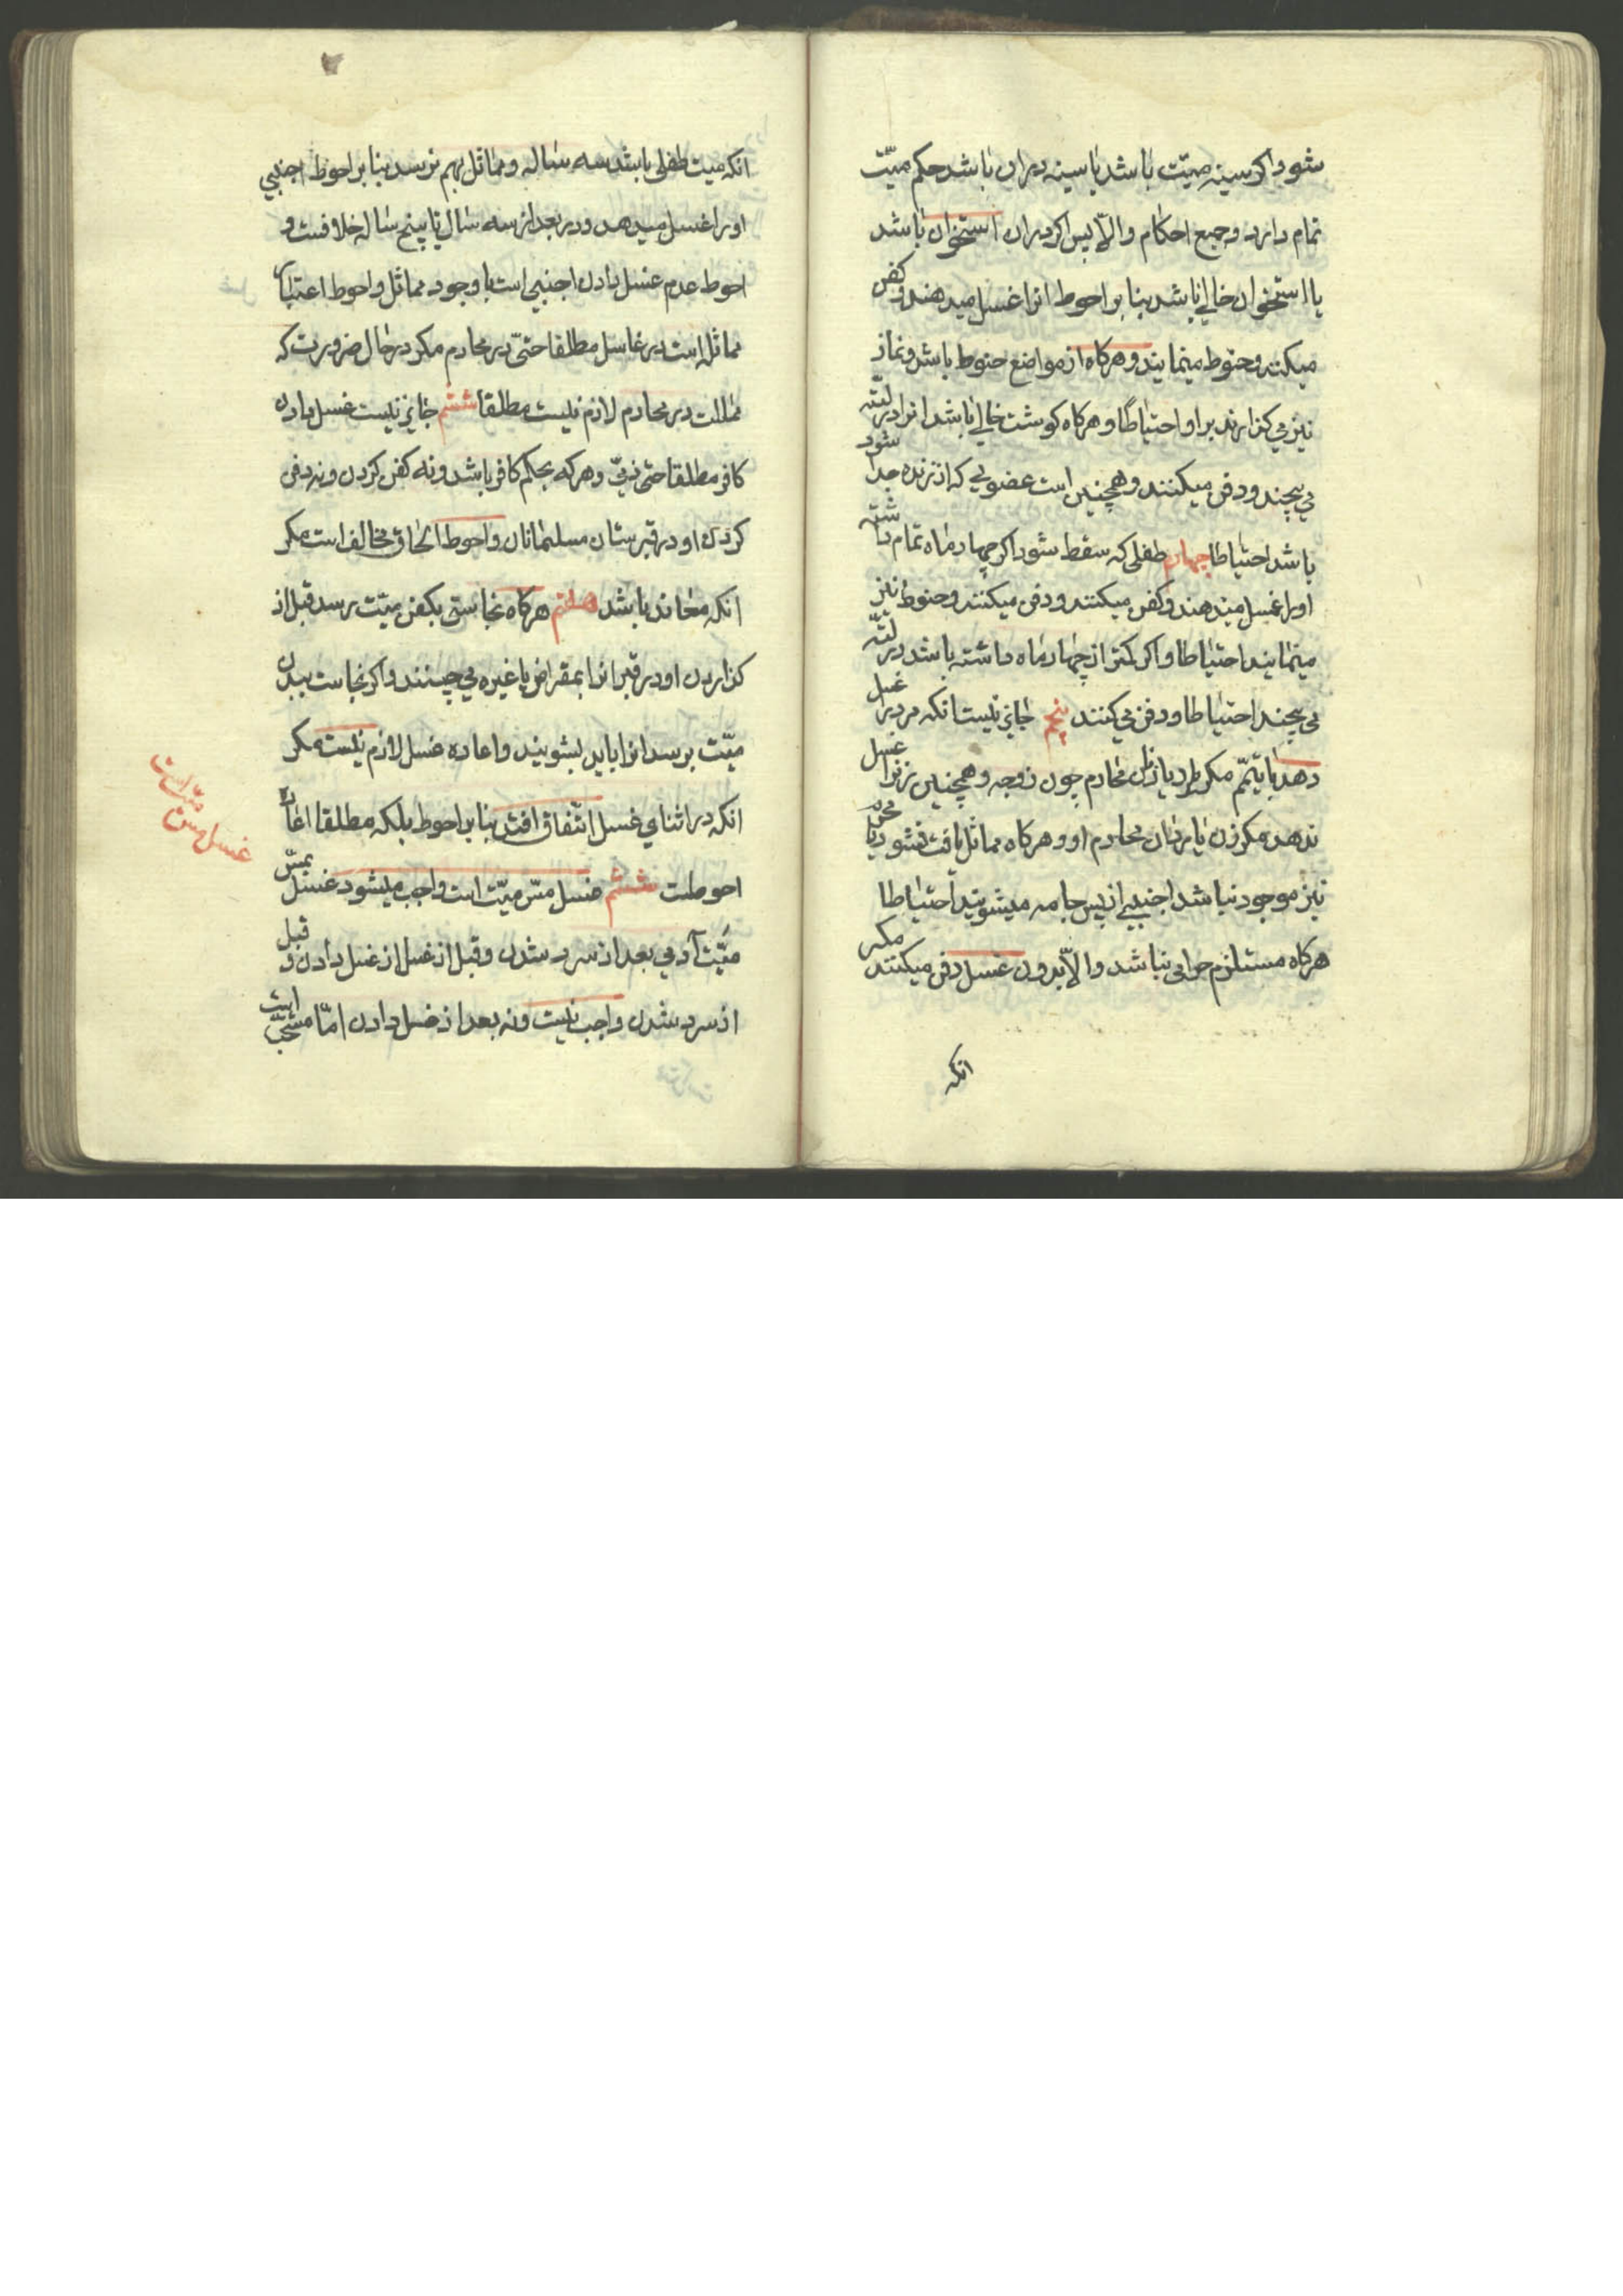 شود اکر سینه میّت باشد یا سینه دران باشد حکم میّت
تمام دارد و جمیع احکام والاّ پس اکر دران استخوان باشد
یا استخوان خالی باشد بنا بر احوط انرا غسل میدهند و کفن
میکنند و حنوط مینمایند و هرکاه از مواضع حنوط باشد و نماز
نیز می کذارند بر او احتیاطا و هرکاه کوشت خالی باشد انرا در لتّه
می پیچند و دفن میکنند و همچنین است عضویی که از زنده جدا شود
باشد احتیاطا چهارم طفلی که سقط شود اکر چهار ماه تمام داشته
او را غسل میدهند و کفن میکنند و دفن میکنند و حنوط نیز
مینمایند احتیاطا و اکر کمتر از چهار ماه داشته باشد در لتّه
می پیچند احتیاطا و دفن می کنند پنجم جایز نیست انکه مرد را غسل
دهد یا تیمّم مکر مرد یا زن محارم چون زوجه و همچنین زنرا غسل
ندهد مکر زن یا مردان محارم او و هرکاه مماثل یافت نشود و یا محرم
نیز موجود نباشد اجنبیی از پس جامه میشویند احتیاطا
هرکاه مستلزم حرامی نباشد والاّ بدون غسل دفن میکنند مکر
انکه
انکه میت طفلی باشد سه ساله و مماثل بهم نرسد بنا بر احوط اجنبی
او را غسل میدهد و در بعد از سه سال تا پنج ساله خلافست و
احوط عدم غسل دادن اجنبی است با وجود مماثل و احوط اعتبار
مماثله است در غاسل مطلقا حتّی در محارم مکر در حال ضرورت که
مماثلت در محارم لازم نیست مطلقا ششم جایز نیست غسل دادن
کافر مطلقا حتی ذمّی و هر که بحکم کافر باشد و نه کفن کردن و نه دفن
کردن او در قبرستان مسلمانان و احوط الحاق مخالف است مکر
انکه معاند باشد هفتم هرکاه نجاستی بکفن میّت رسد قبل از
کذاردن او در قبر انرا بمقراض یا غیره می چینند و اکر نجاست ببدن
میّت برسد انرا باید بشویند و اعاده غسل لازم نیست مکر
انکه در اثنای غسل اتّفاق افتد بنا بر احوط بلکه مطلقا اعاده
احوطست ششم غسل مسّ میّت است واجب میشود غسل بمسّ
میّت آدمی بعد از سرد شدن و قبل از غسل از غسل دادن و قبل
از سرد شدن واجب نیست و نه بعد از غسل دادن امّا مستحبّ است
غسل مسّ میّت است